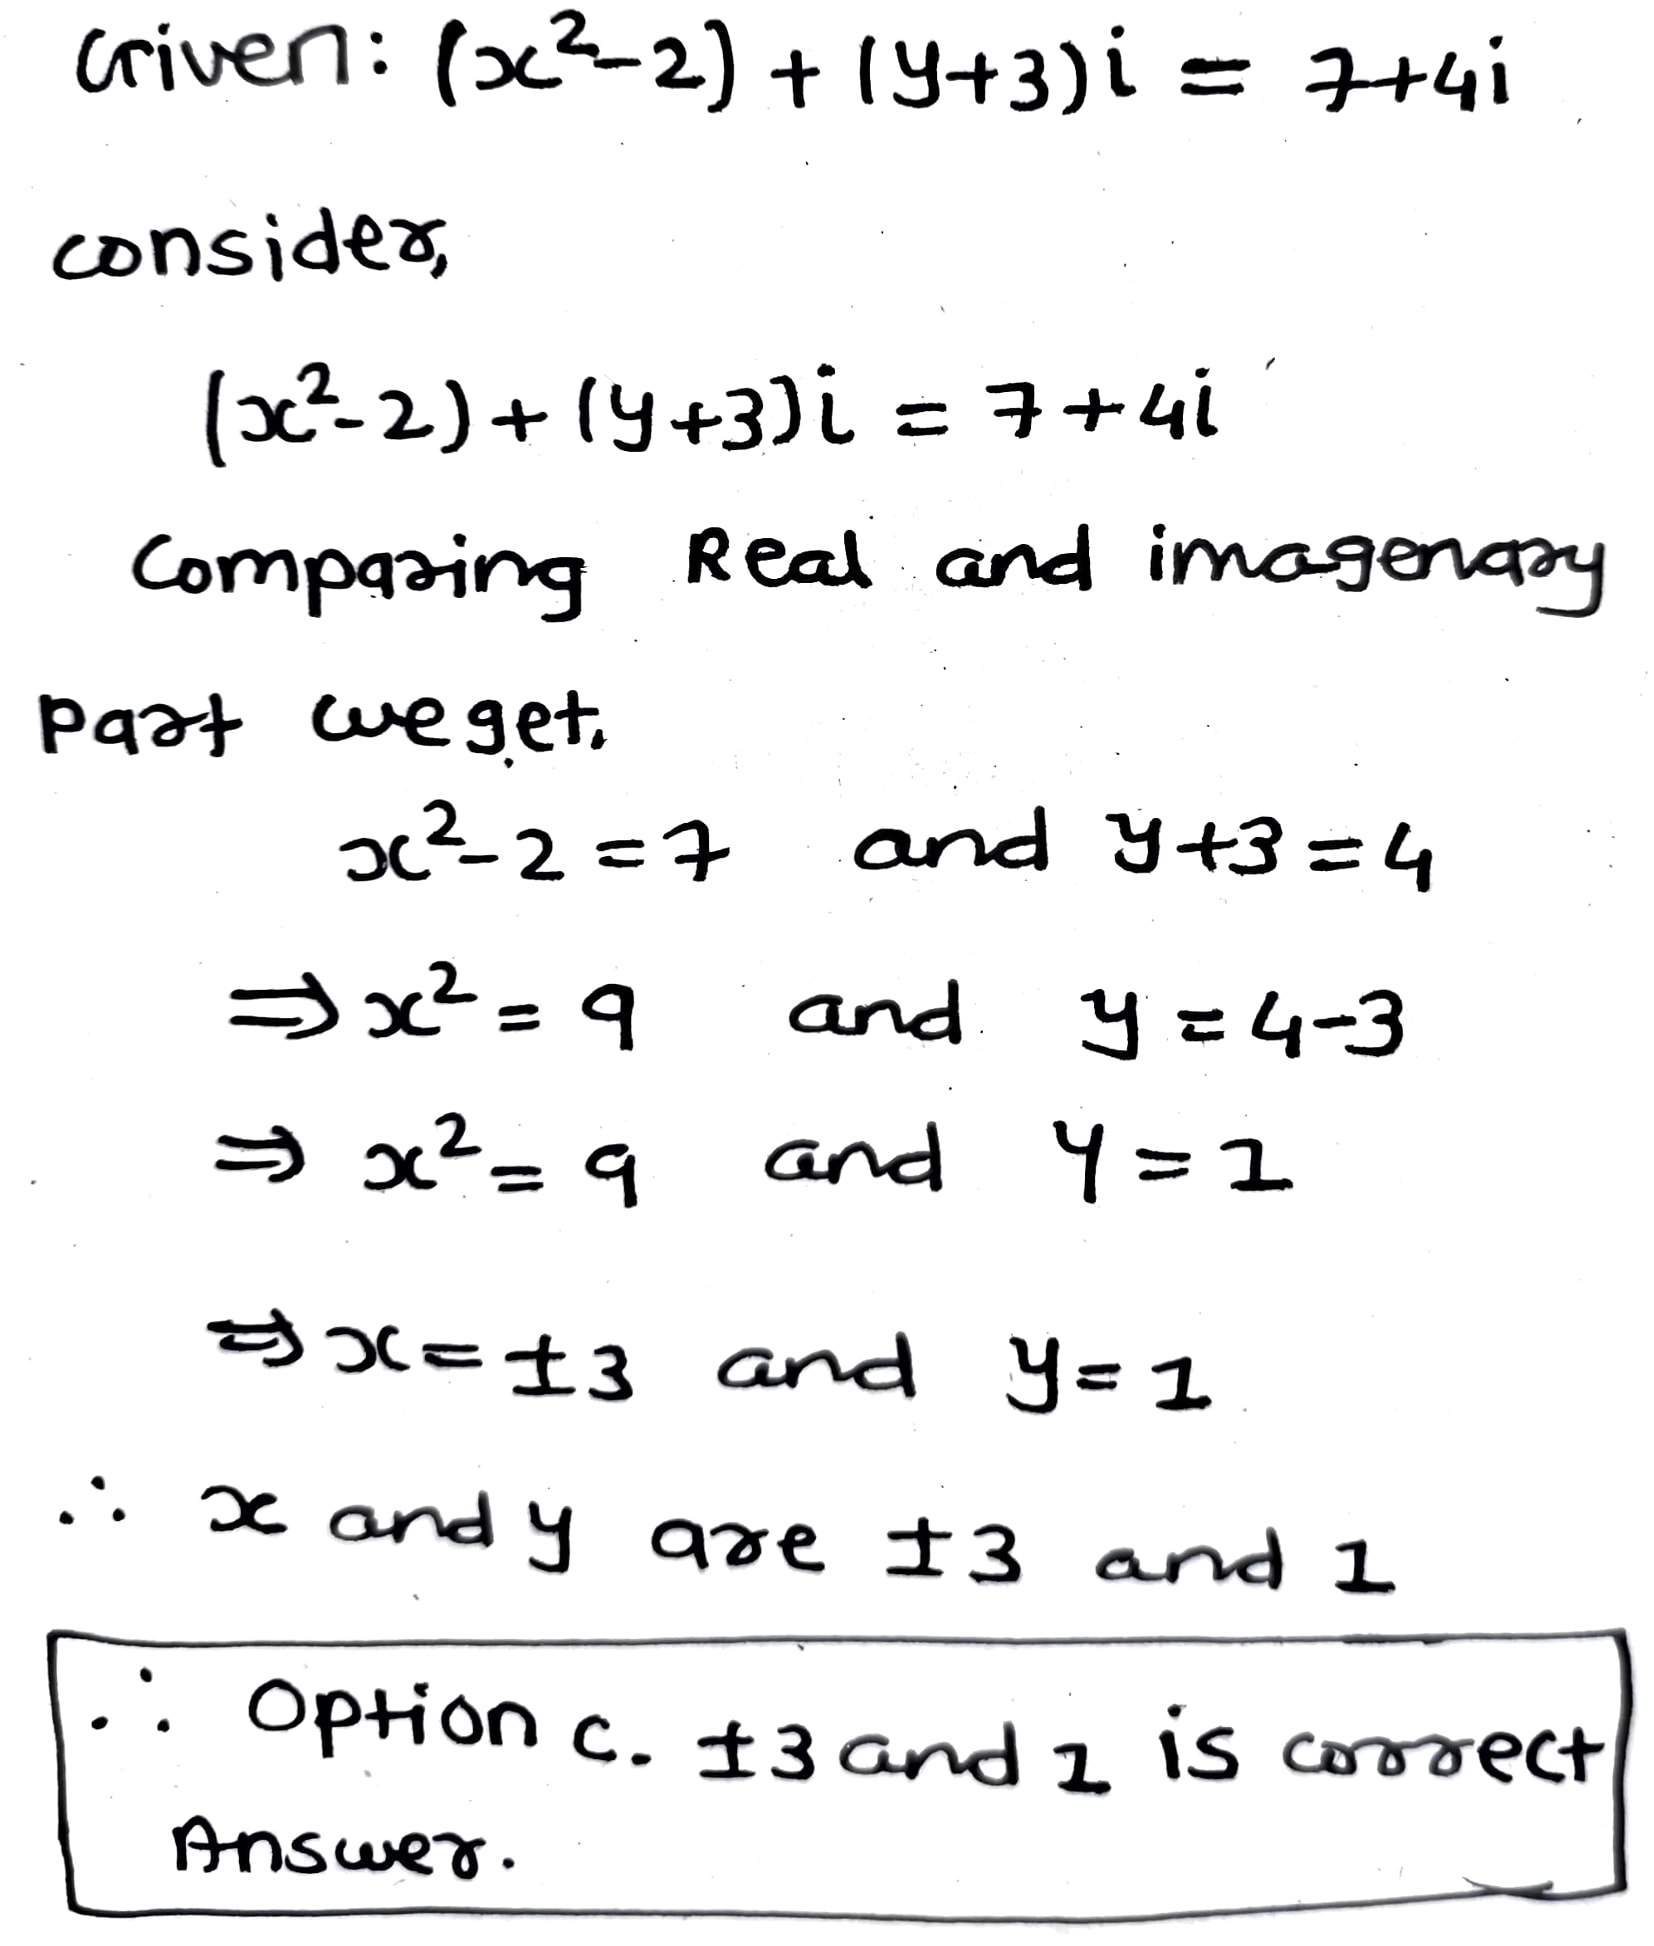 Given: (x²-2) + (y+3)i = 7+4i
consider,
(x²-2) + (y+3)i = 7+4i
Comparing Real and imagenary
part we get.
x²-2 = 7 and y+3 = 4
⇒ x² = 9 and y = 4-3
⇒ x² = 9 and y = 1
⇒ x = ±3 and y = 1
∴ x and y are ±3 and 1
∴ Option c. ±3 and 1 is correct
Answer.